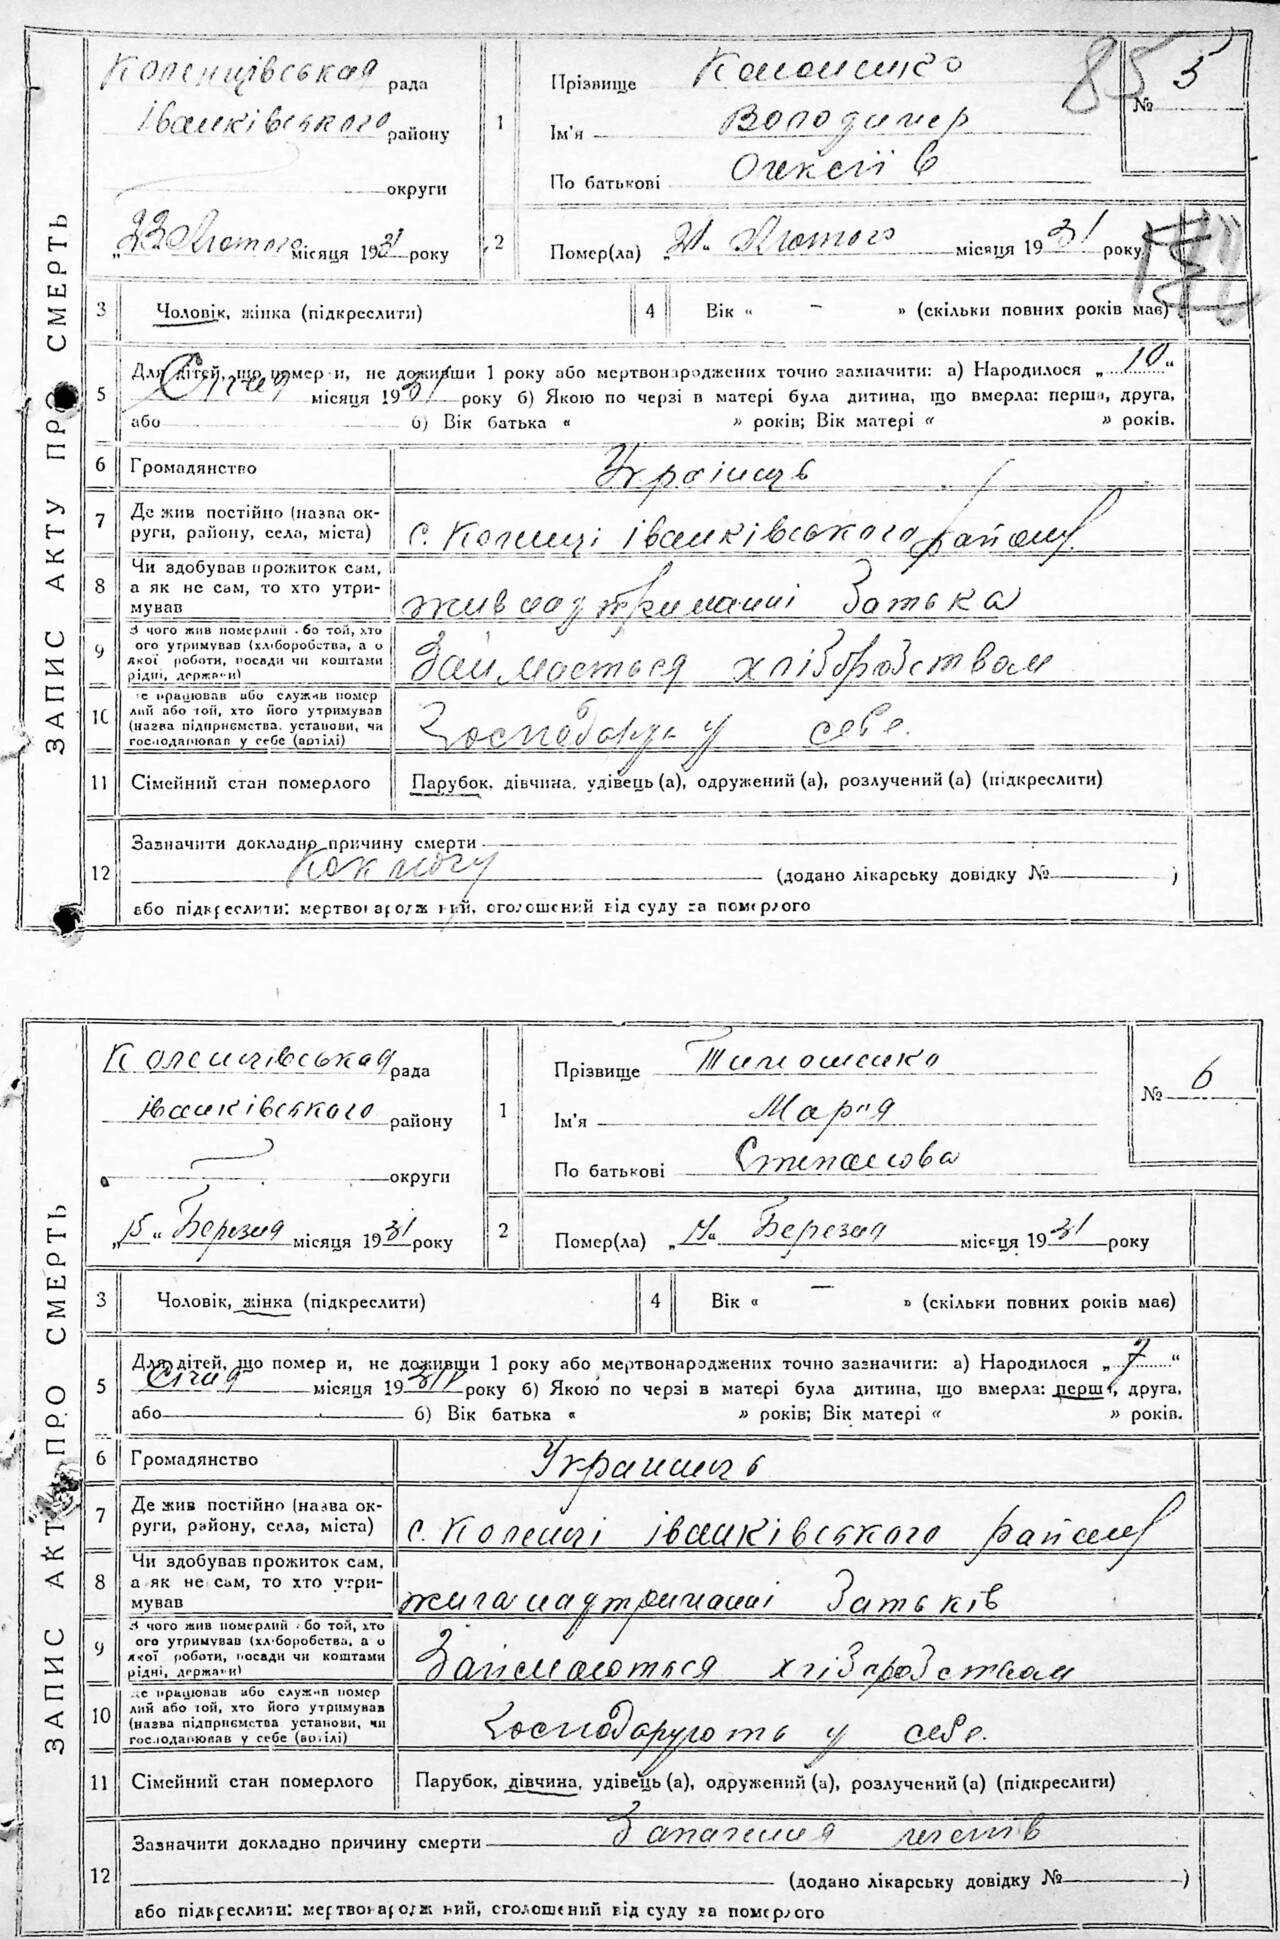 ЗАПИС АКТУ ПРО СМЕРТЬ
Коленцівськая рада
Іванківського району
округи
„23 Лютого місяця 1931 року
1
Прізвище
Ім'я Володимер
По батькові Олексіїв
85
№ 5
2
Помер(ла) „21„ Лютого місяця 1931 року
3 Чоловік, жінка (підкреслити)
4 Вік « – » (скільки повних років має)
5 Для дітей, що померли, не доживши 1 року або мертвонароджених точно зазначити: а) Народилося „ 10 “
Січня місяця 1931 року б) Якою по черзі в матері була дитина, що вмерла: перша, друга,
або б) Вік батька « » років; Вік матері « » років.
6 Громадянство Українць
7 Де жив постійно (назва ок-
руги, району, села, міста) с. Коленці іванківського району
8 Чи здобував прожиток сам,
а як не сам, то хто утри-
мував жив надтриманні Батька
9 З чого жив померлий або той, хто
його утримував (хліборобства, а о
якої роботи, посади чи коштами
рідні, держави) Займається хлібробством
10 Де працював або служив помер
лий або той, хто його утримував
(назва підприємства, установи, чи
господарював у себе (артілі) у себе.
11 Сімейний стан померлого Парубок, дівчина, удівець (а), одружений (а), розлучений (а) (підкреслити)
12 Зазначити докладно причину смерти
Коклюшу
(додано лікарську довідку № )
або підкреслити: мертвонароджений, оголошений від суду за померлого
ЗАПИС АКТ ПРО СМЕРТЬ
Коленцівськая рада
іванківського району
округи
„15“ Березня місяця 1931 року
1
Прізвище Тимошенко
Ім'я Мария
По батькові Степанова
№ 6
2
Помер(ла) „ Березня місяця 1931 року
3 Чоловік, жінка (підкреслити)
4 Вік « – » (скільки повних років має)
5 Для дітей, що померли, не доживши 1 року або мертвонароджених точно зазначити: а) Народилося „ 7 “
Січня місяця 1931 року б) Якою по черзі в матері була дитина, що вмерла: перша, друга,
або б) Вік батька « » років; Вік матері « » років.
6 Громадянство Українць
7 Де жив постійно (назва ок-
руги, району, села, міста) с. Коленці іванківського району
8 Чи здобував прожиток сам,
а як не сам, то хто утри-
мував жила надтриманні Батьків
9 З чого жив померлий або той, хто
його утримував (хліборобства, а о
якої роботи, посади чи коштами
рідні, держави) Займаються хлібробством
10 Де працював або служив помер
лий або той, хто його утримував
(назва підприємства установи, чи
господарював у себе (артілі) Господарують у себе.
11 Сімейний стан померлого Парубок, дівчина, удівець (а), одружений (а), розлучений (а) (підкреслити)
12 Зазначити докладно причину смерти Запалення легенів
(додано лікарську довідку № )
або підкреслити: мертвонароджений, оголошений від суду за померлого